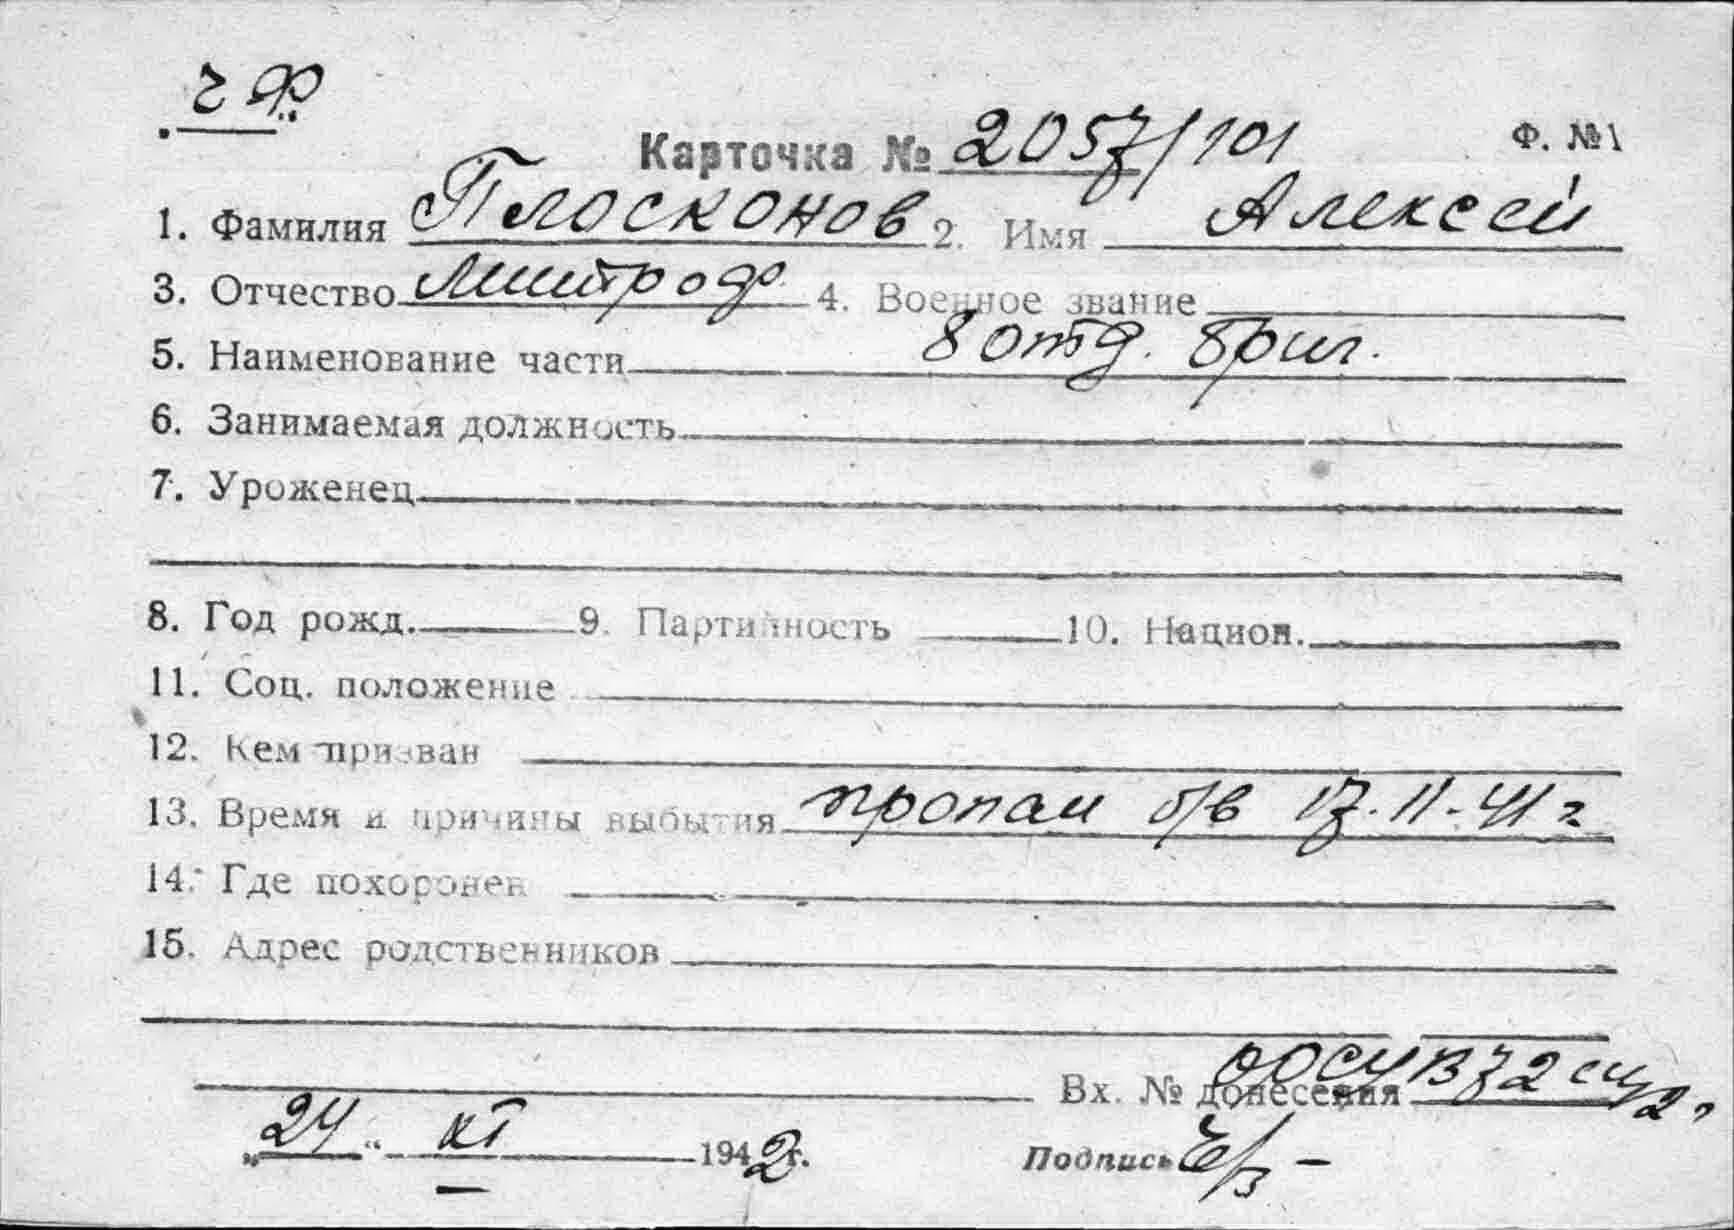 ч Ф
Карточка № 2057/101 Ф. №1
1. Фамилия Плосконов 2. Имя Алексей
3. Отчество Митроф. 4. Военное звание
5. Наименование части 8 отд. бриг.
6. Занимаемая должность
7. Уроженец
8. Год рожд. 9. Партийность 10. Национ.
11. Соц. положение
12. Кем призван
13. Время и причины выбытия пропал б/в 17.11-41 г
14. Где похоронен
15. Адрес родственников
Вх. № донесения
„24“ 1942 г. Подпись